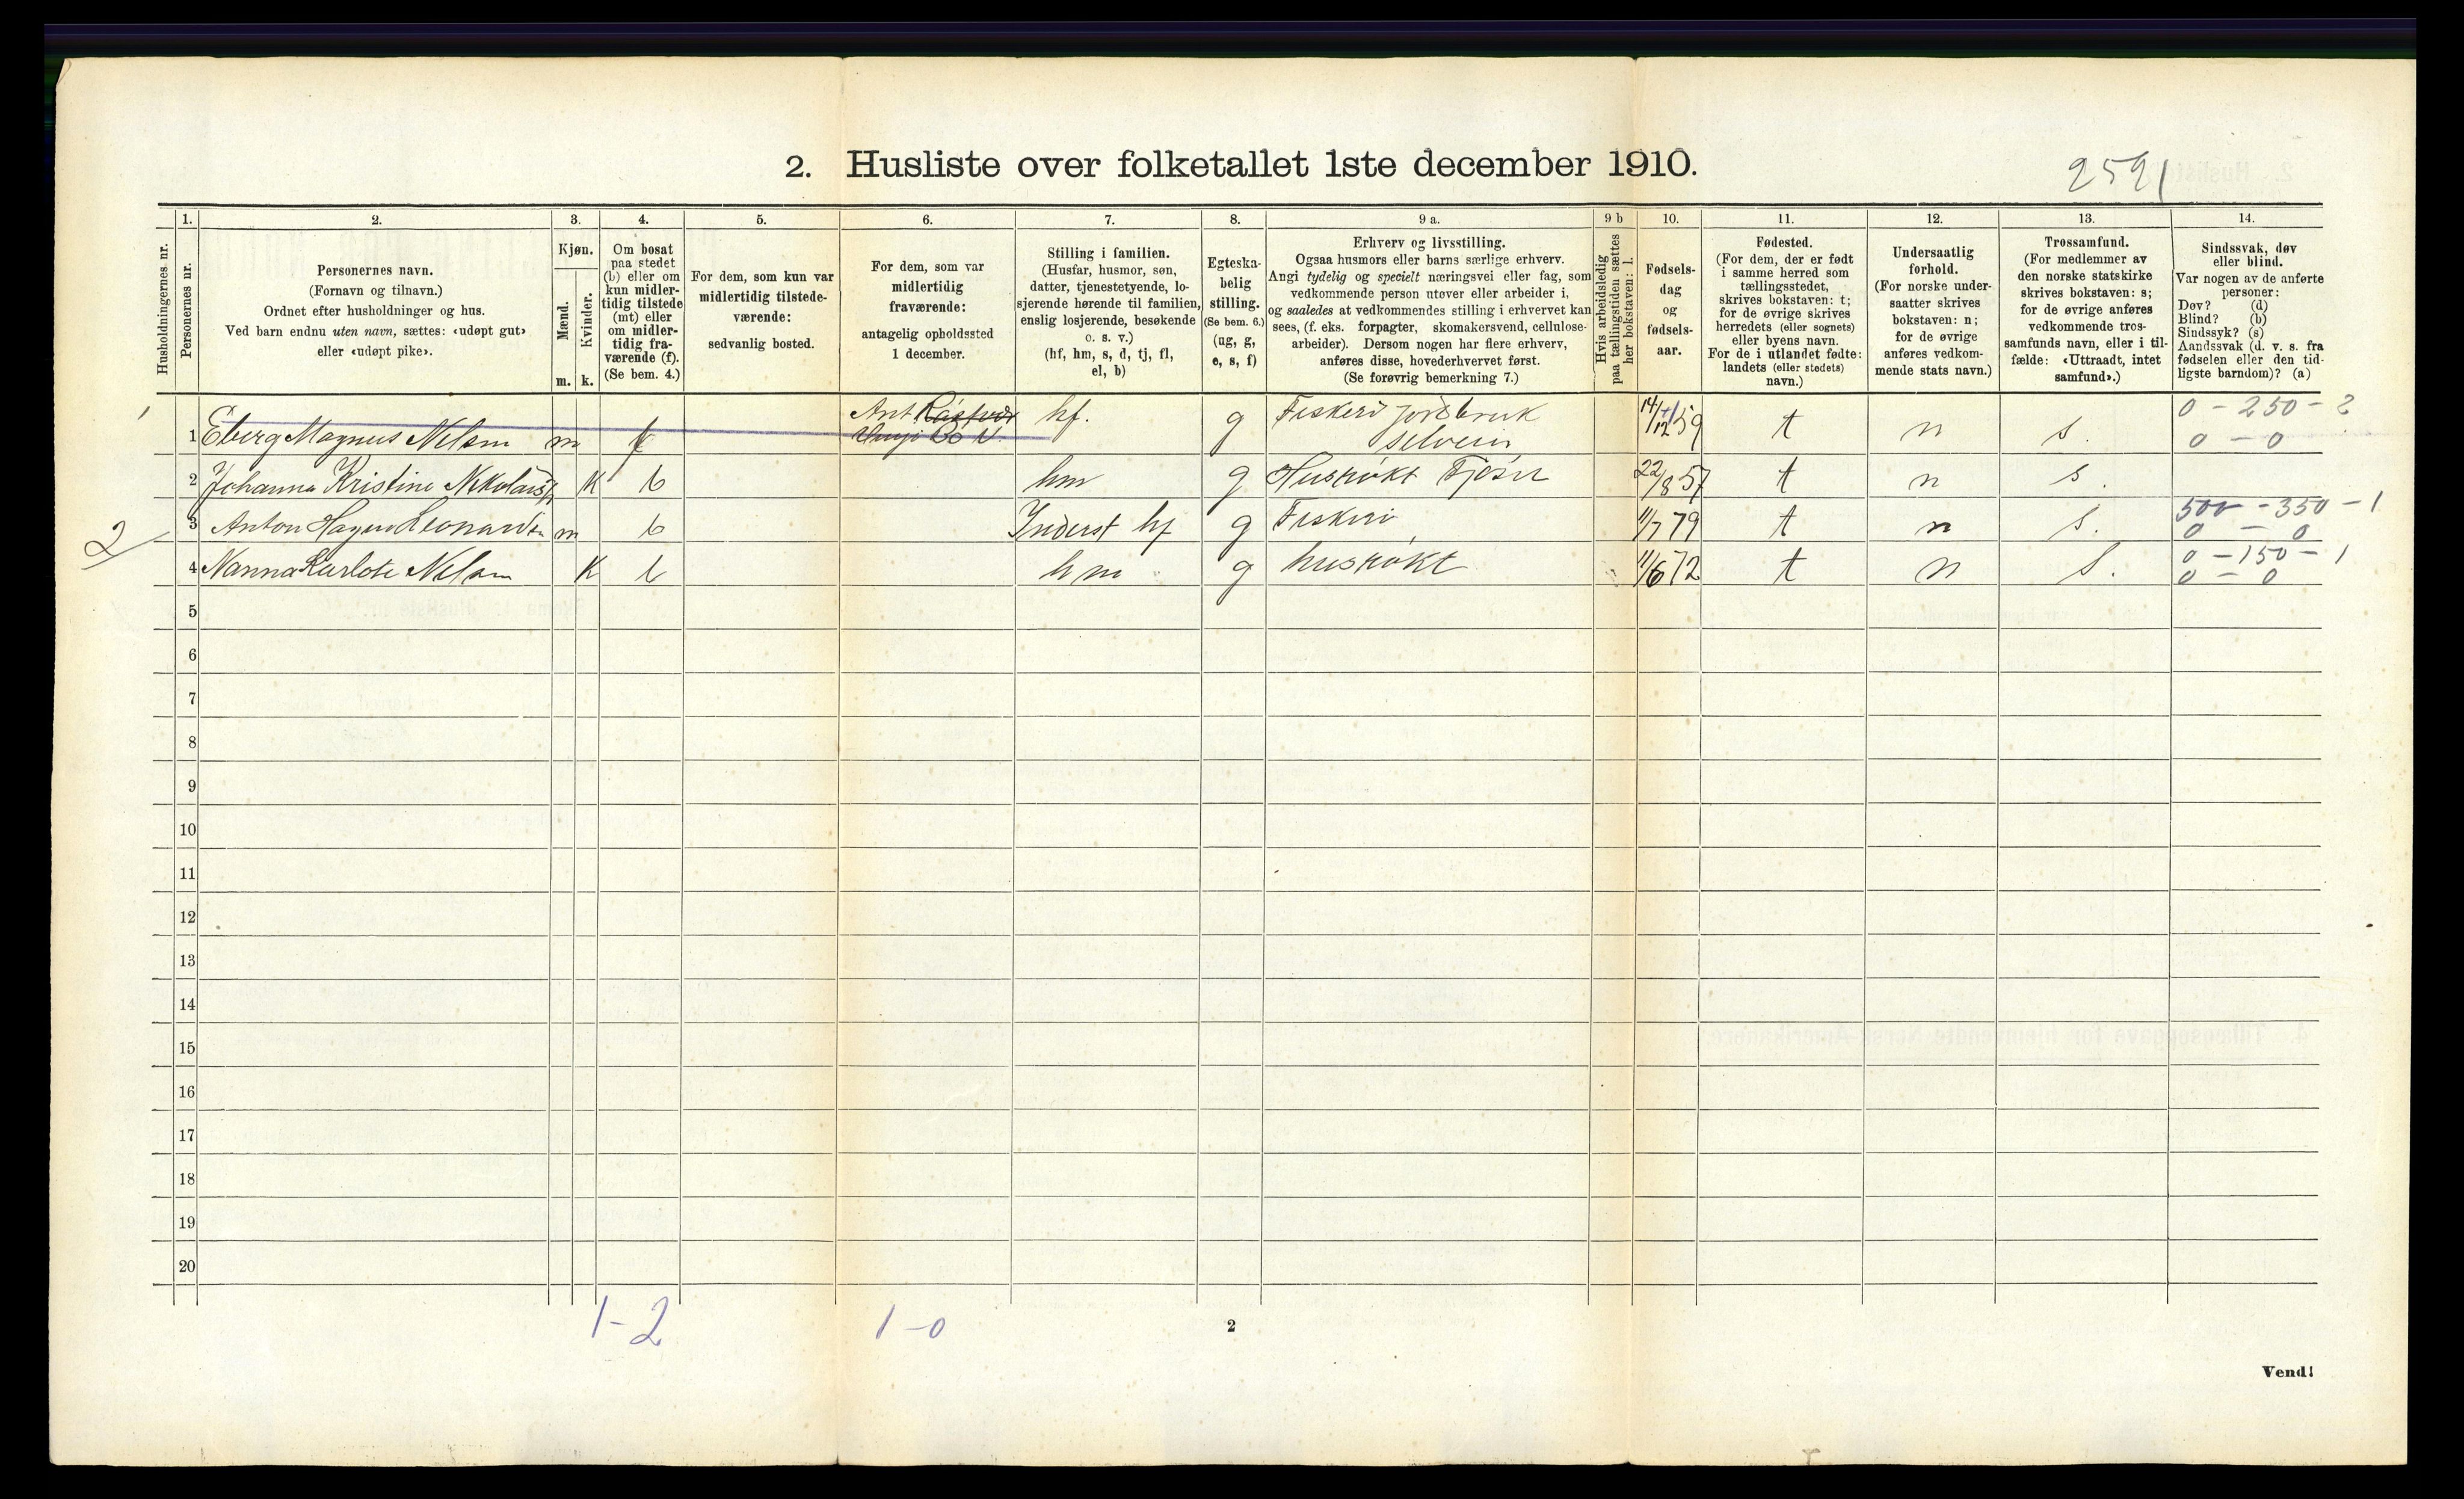 2. Husliste over folketallet 1ste december 1910.
2591
1. 2. 3. 4. 5. 6. 7. 8. 9 a. 9 b 10. 11. 12. 13. 14.
Husholdningernes nr.
Personernes nr.
Personernes navn.
(Fornavn og tilnavn.)
Ordnet efter husholdninger og hus.
Ved barn endnu uten navn, sættes: «udøpt gut»
eller «udøpt pike».
Kjøn.
Mænd.
Kvinder.
m. k.
Om bosat
paa stedet
(b) eller om
kun midler-
tidig tilstede
(mt) eller
om midler-
tidig fra-
værende (f).
(Se bem. 4.)
For dem, som kun var
midlertidig tilstede-
værende:
sedvanlig bosted.
For dem, som var
midlertidig
fraværende:
antagelig opholdssted
1 december.
Stilling i familien.
(Husfar, husmor, søn,
datter, tjenestetyende, lo-
sjerende hørende til familien,
enslig losjerende, besøkende
o. s. v.)
(hf, hm, s, d, tj, fl,
el, b)
Egteska-
belig
stilling.
(Se bem. 6.)
(ug, g,
e, s, f)
Erhverv og livsstilling.
Ogsaa husmors eller barns særlige erhverv.
Angi tydelig og specielt næringsvei eller fag, som
vedkommende person utøver eller arbeider i,
og saaledes at vedkommendes stilling i erhvervet kan
sees, (f. eks. forpagter, skomakersvend, cellulose-
arbeider). Dersom nogen har flere erhverv,
anføres disse, hovederhvervet først.
(Se forøvrig bemerkning 7.)
Hvis arbeidsledig
paa tællingstiden sættes
her bokstaven: l.
Fødsels-
dag
og
fødsels-
aar.
Fødested.
(For dem, der er født
i samme herred som
tællingsstedet,
skrives bokstaven: t;
for de øvrige skrives
herredets (eller sognets)
eller byens navn.
For de i utlandet fødte:
landets (eller stedets)
navn.)
Undersaatlig
forhold.
(For norske under-
saatter skrives
bokstaven: n;
for de øvrige
anføres vedkom-
mende stats navn.)
Trossamfund.
(For medlemmer av
den norske statskirke
skrives bokstaven: s;
for de øvrige anføres
vedkommende tros-
samfunds navn, eller i til-
fælde: «Uttraadt, intet
samfund».)
Sindssvak, døv
eller blind.
Var nogen av de anførte
personer:
Døv? (d)
Blind? (b)
Sindssyk? (s)
Aandssvak (d. v. s. fra
fødselen eller den tid-
ligste barndom)? (a)
1 Eberg Magnus Nelsen m f Ant hf. g Fiskeri jordbruk selveier 14/12 59 t n s. 0 - 250 - 2
0 - 0
2 Johanna Kristine K b hm g Husrökt Fjøset 22/8 57 t n s.
2 3 Anton Hagen m b Inderst hf g Fiskeri 11/7 79 t n s. 500 - 350 - 1
0 - 0
4 Nanna Karlote Nelsen K b hm g husrökt 11/6 72 t n s. 0 - 150 - 1
0 - 0
5
6
7
8
9
10
11
12
13
14
15
16
17
18
19
20
1-2 1-0
2
Vend!